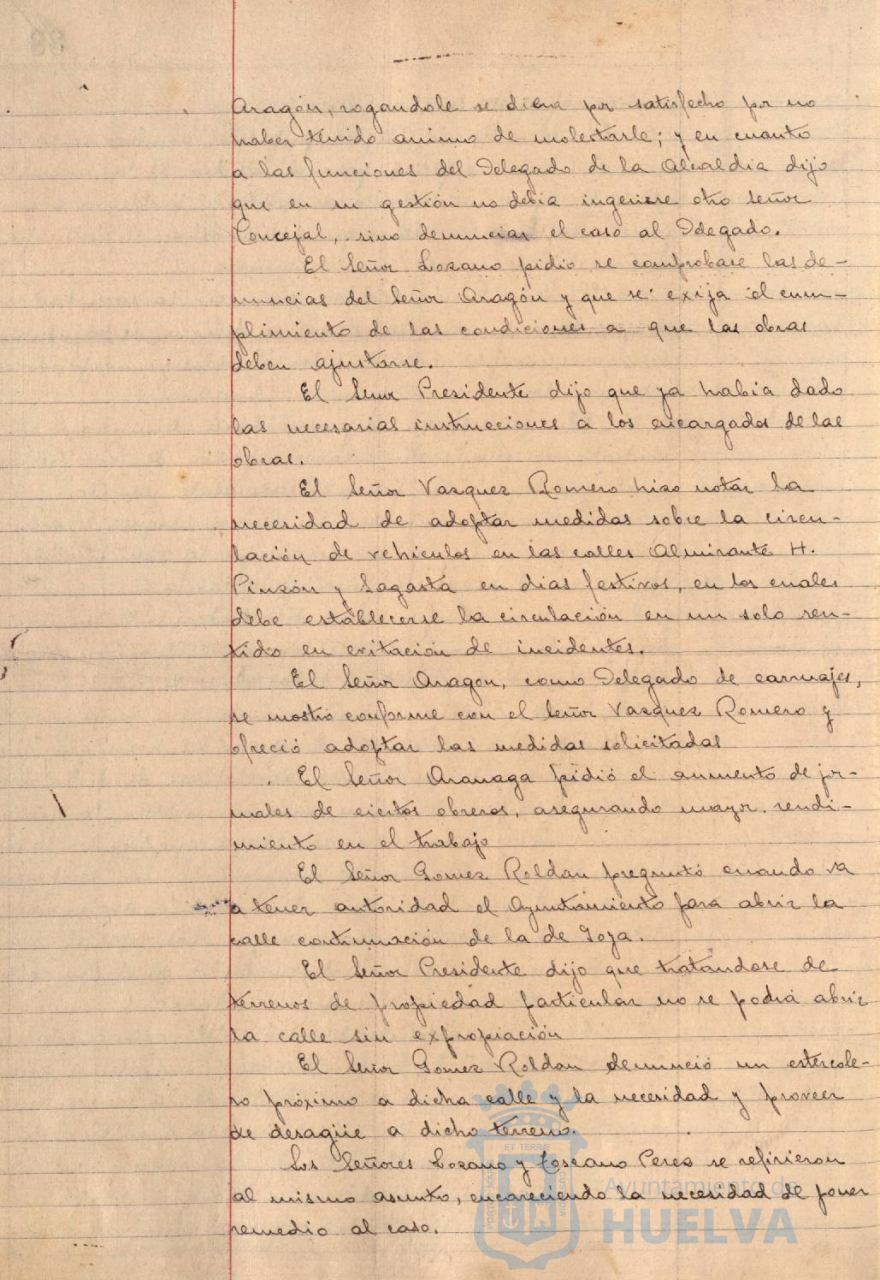 Aragón, rogandole se diera por satisfecho por no
haber tenido animo de molestarle; y en cuanto
a las funciones del Delegado de la Alcaldia dijo
que en su gestión no debia ingerirse otro señor
Concejal, sino denunciar el caso al Delegado.
El Señor Lozano pidio se comprobase las de-
nuncias del Señor Aragón y que se exija el cum-
plimiento de las condiciones a que las obras
deben ajustarse.
El Señor Presidente dijo que ya habia dado
las necesarias instrucciones a los encargados de las
obras.
El Señor Vazquez Romero hizo notar la
necesidad de adoptar medidas sobre la circu-
lación de vehículos en las calles Almirante H.
Pinzón y Sagasta en dias festivos, en los cuales
debe establecerse la circulación en un solo sen-
tido en evitación de incidentes.
El Señor Aragon, como Delegado de carruajes,
se mostró conforme con el Señor Vazquez Romero y
ofreció adoptar las medidas solicitadas
El Señor Aranaga pidió el aumento de jor-
nales de ciertos obreros, asegurando mayor rendi-
miento en el trabajo
El Señor Gomez Roldan preguntó cuando va
a tener autoridad el Ayuntamiento para abrir la
calle continuación de la de Goya.
El Señor Presidente dijo que tratándose de
terrenos de propiedad particular no se podrá abrir
la calle sin expropiación
El Señor Gomez Roldan denunció un estercole-
ro próximo a dicha calle y la necesidad y proveer
de desagüe a dicho terreno.
Los Señores Lozano y Toscano Perez se refirieron
al mismo asunto, encareciendo la necesidad de poner
remedio al caso.
Ayuntamiento de
HUELVA